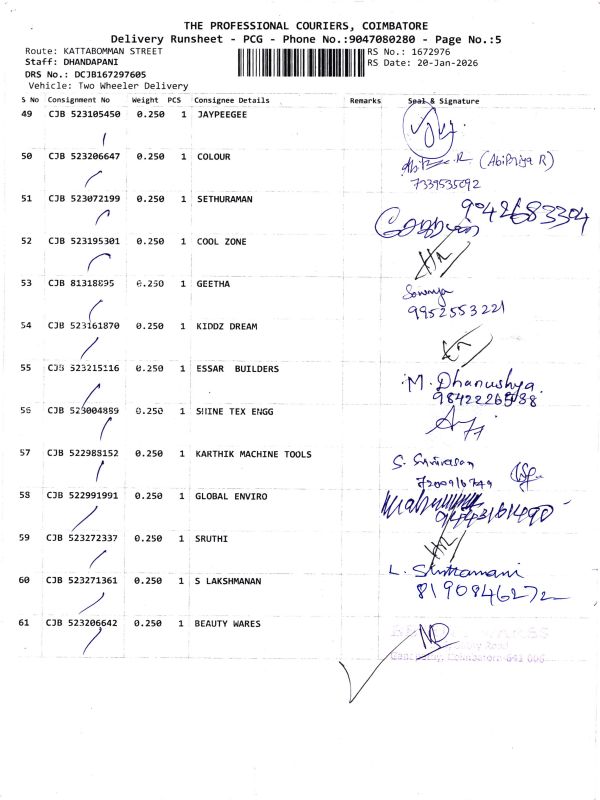 THE PROFESSIONAL COURIERS, COIMBATORE
Delivery Runsheet - PCG - Phone No.:9047080280 - Page No.:5
Route: KATTABOMMAN STREET RS No.: 1672976
Staff: DHANDAPANI RS Date: 20-Jan-2026
DRS No.: DCJB167297605
Vehicle: Two Wheeler Delivery
S No Consignment No Weight PCS Consignee Details Remarks Seal & Signature
49 CJB 523105450 0.250 1 JAYPEEGEE
50 CJB 523206647 0.250 1 COLOUR (Abipriya R)
7339535092
51 CJB 523072199 0.250 1 SETHURAMAN 9942683304
52 CJB 523195301 0.250 1 COOL ZONE
53 CJB 81318895 0.250 1 GEETHA Sowmya
9952553221
54 CJB 523161870 0.250 1 KIDDZ DREAM
55 CJB 523215116 0.250 1 ESSAR BUILDERS M. Dhanushya
56 CJB 523004889 0.250 1 SHINE TEX ENGG
57 CJB 522988152 0.250 1 KARTHIK MACHINE TOOLS S. Srinivasan
58 CJB 522991991 0.250 1 GLOBAL ENVIRO
59 CJB 523272337 0.250 1 SRUTHI
60 CJB 523271361 0.250 1 S LAKSHMANAN L.
8190846272
61 CJB 523206642 0.250 1 BEAUTY WARES